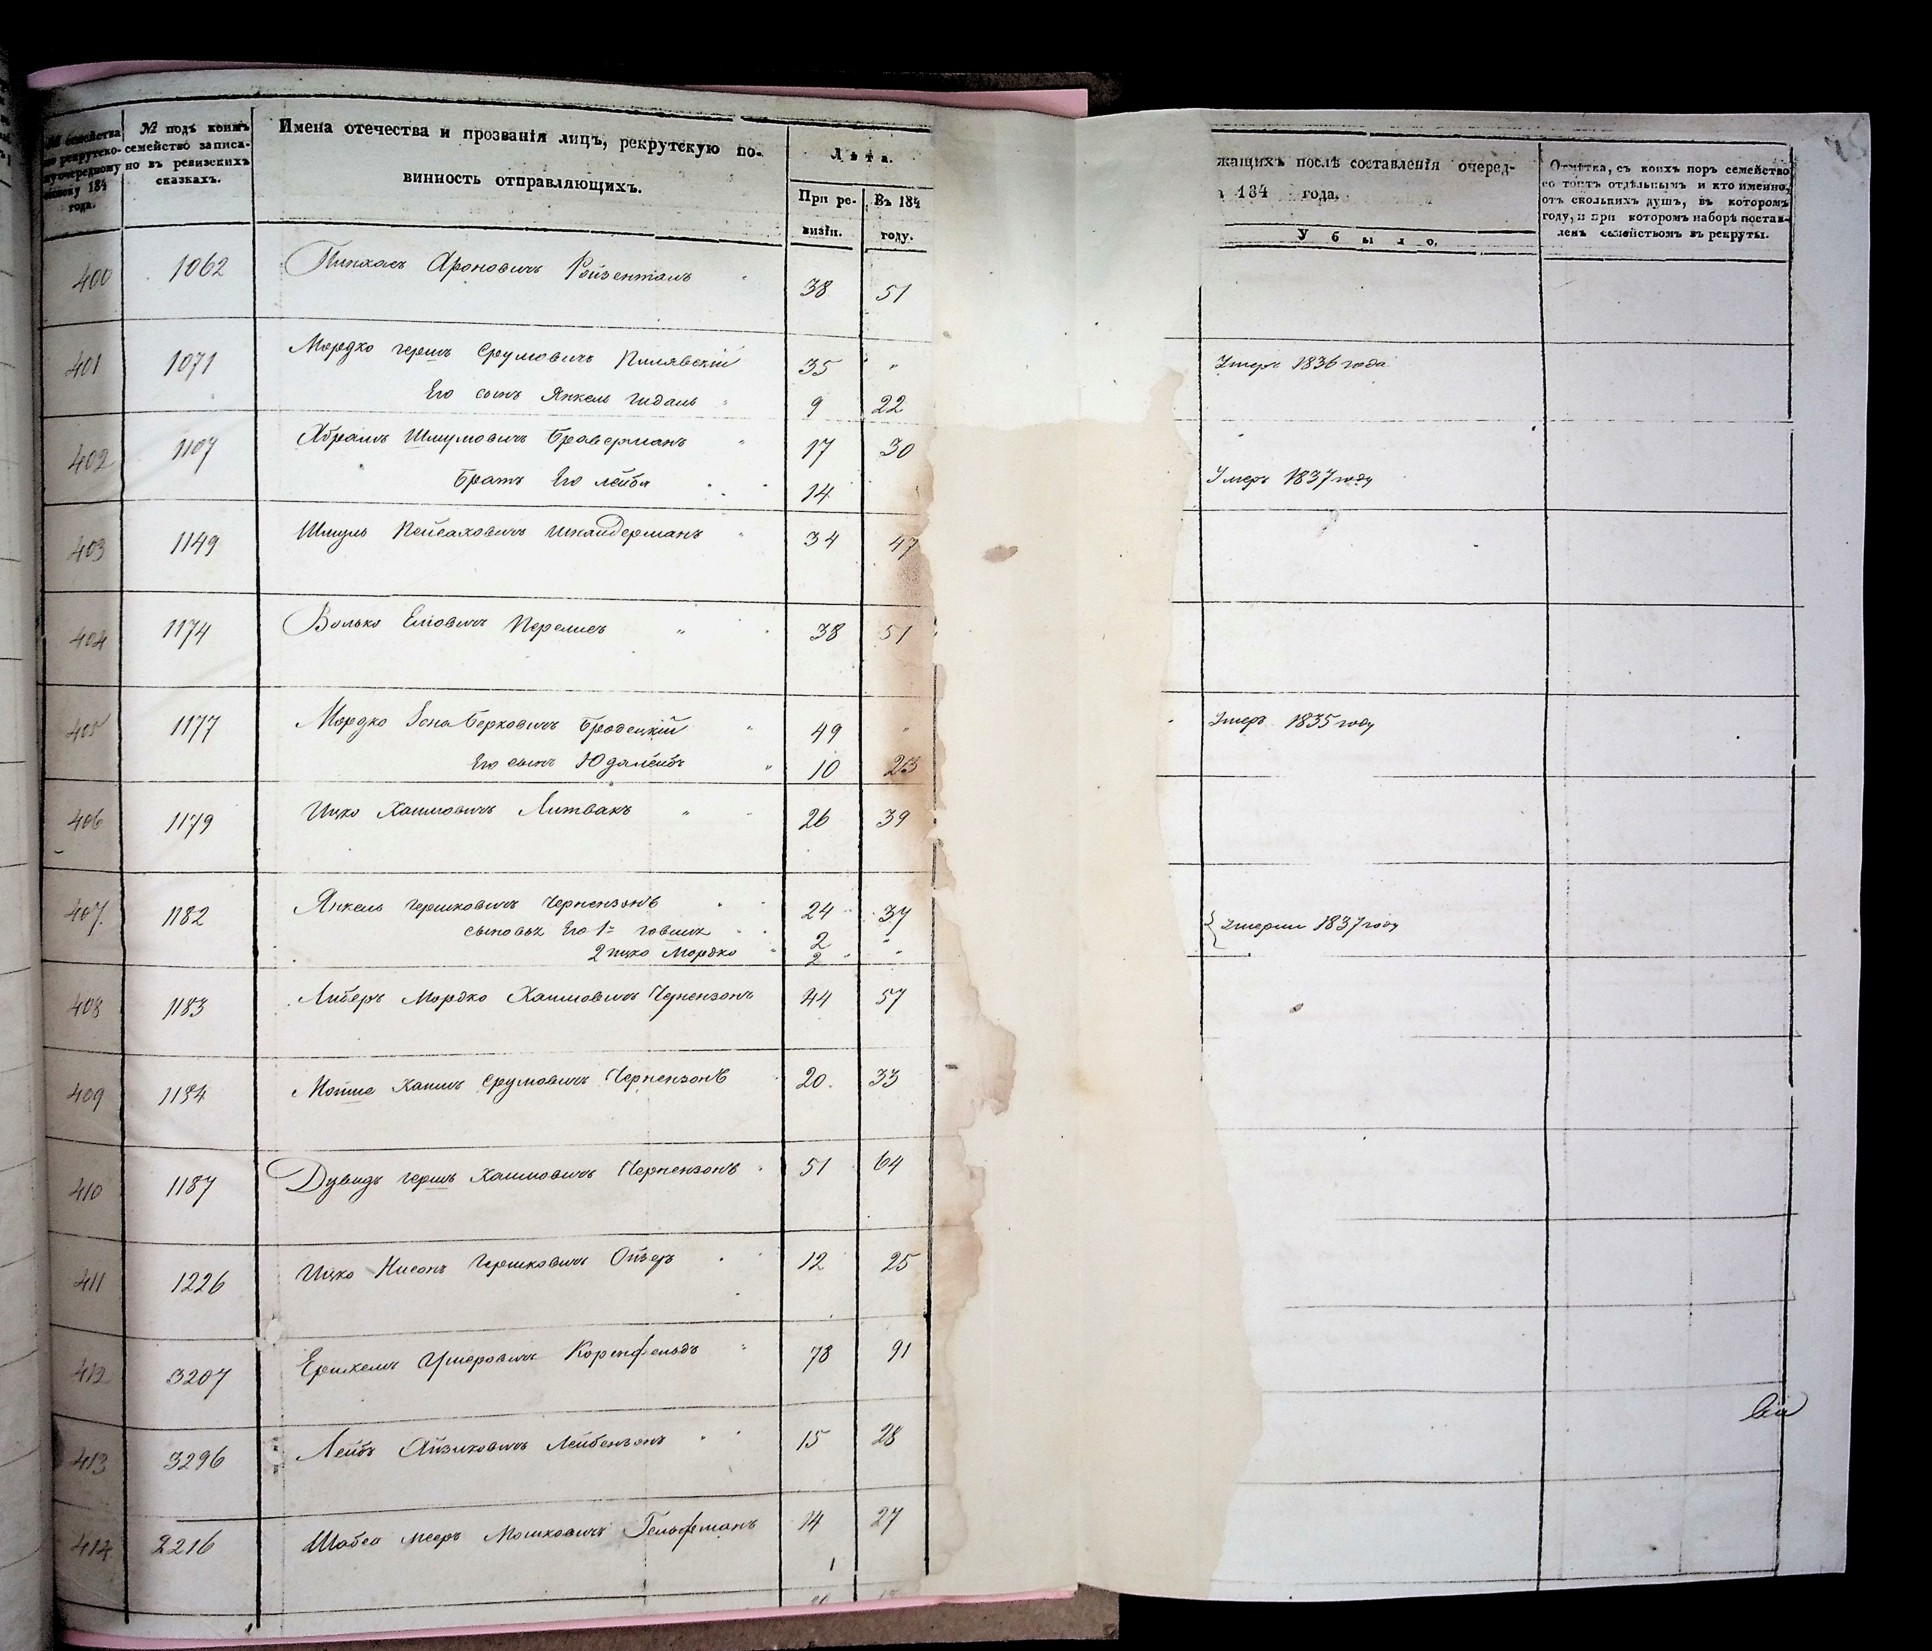 № семейства по рекрутскому очередному списку 184 года.
№ подъ коимъ семейство записано въ ревизскихъ сказкахъ.
Имена отечества и прозванія лицъ, рекрутскую повинность отправляющихъ.
Лѣта.
При ревизіи.
Въ 184 году.
жащихъ послѣ составленія очеред-
184 года.
Убыло.
Отмѣтка, съ коихъ поръ семейство
отдѣльнымъ и кто именно,
отъ сколькихъ душъ, въ которомъ
году, и при которомъ наборѣ постав-
ленъ семействомъ въ рекруты.
400 1062 Пинхасъ Ароновичъ Ройзенталь 38 51
401 1071 Мордко Гершъ Срумовичъ Пилявскій 35 " Умеръ 1836 года
Его сынъ Янкель Гидаль " 9 22
402 1107 Абрамъ Шмулювичъ Браверманъ " 17 30
Братъ Его Лейба 14 Умеръ 1837 году
403 1149 Шмуль Пейсаховичъ Шнайдерманъ " 34 47
404 1174 Волько Еліовичъ Перелисъ " 38 51
405 1177 Мордко Іона Берковичъ Бродецкій " 49 " Умеръ 1835 году
Его сынъ Юдалейбъ " 10 23
406 1179 Ицко Хаимовичъ Литвакъ " 26 39
407 1182 Янкель Гершковичъ Черпензонъ 24 37
сыновья Его 1й 2 " Умерли 1837 году
2 Ицко Мордко " 2 "
408 1183 Либеръ Мордко Хаимовичъ Черпензонъ 44 57
409 1184 Мойше Хаимъ Срумовичъ Черпензонъ 20 33
410 1187 Дувидъ Гершъ Хаимовичъ Черпензонъ 51 64
411 1226 Ицко Нисонъ Гершковичъ Ойзеръ 12 25
412 3207 Ушеровичъ Коренфельдъ " 78 91
413 3296 Лейбъ Айзиковичъ Лейбензонъ " 15 28
414 2216 Шабса Мееръ Мошковичъ Гельфманъ 14 27
1